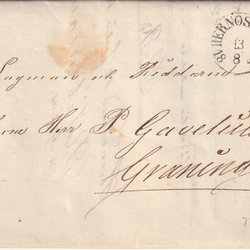 HERNÖS
13
8
Lagman och Riddaren
Herr P. Gavelius
Graninge